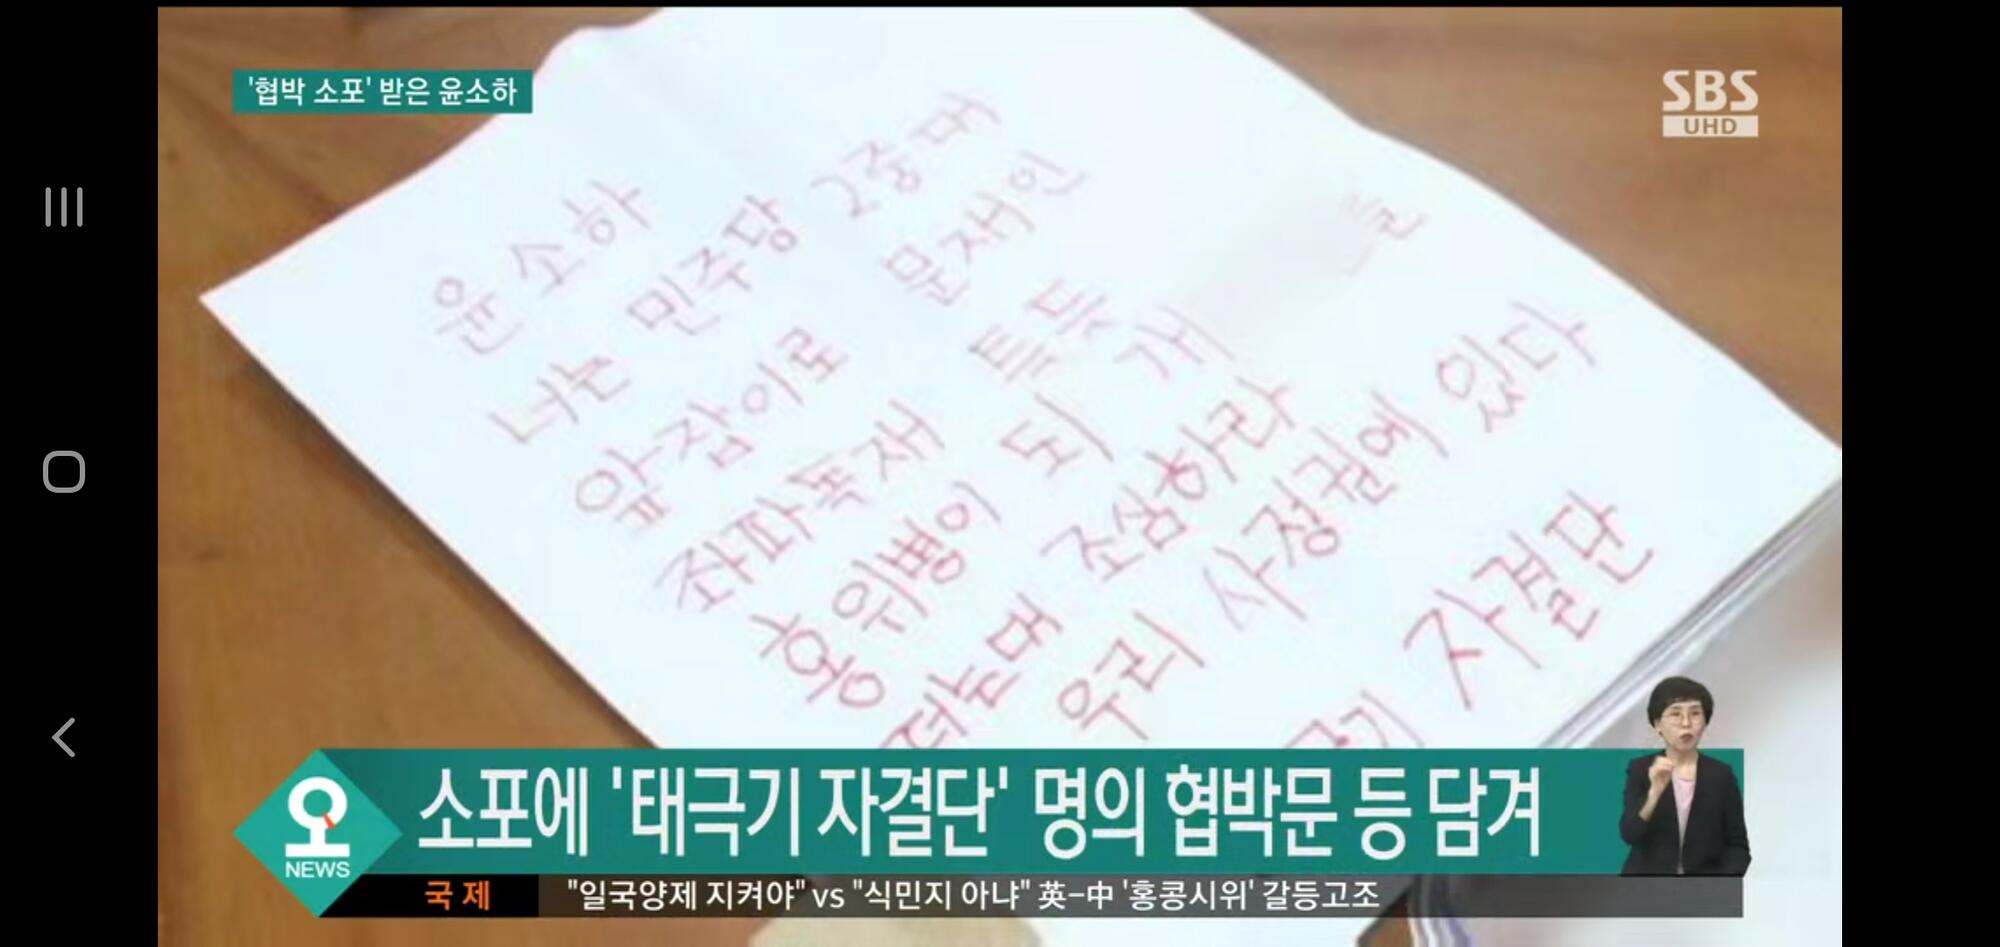 '협박 소포' 받은 윤소하
SBS
UHD
윤소하
너는 민주당 2중대
앞잡이로 문재인
좌파독재 특등
홍위병이 되 개 들
더는 조심하라
우리 사정권에 있다
자결단
소포에 '태극기 자결단' 명의 협박문 등 담겨
오 NEWS
국제 "일국양제 지켜야" vs "식민지 아냐" 英-中 '홍콩시위' 갈등고조